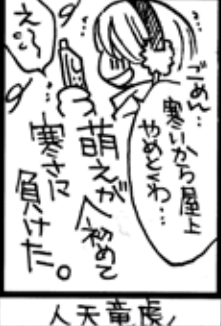 ごめん…
寒いから屋上
やめとくわ…
えー
萌えが初めて
寒さに
負けた。
人天竜虎